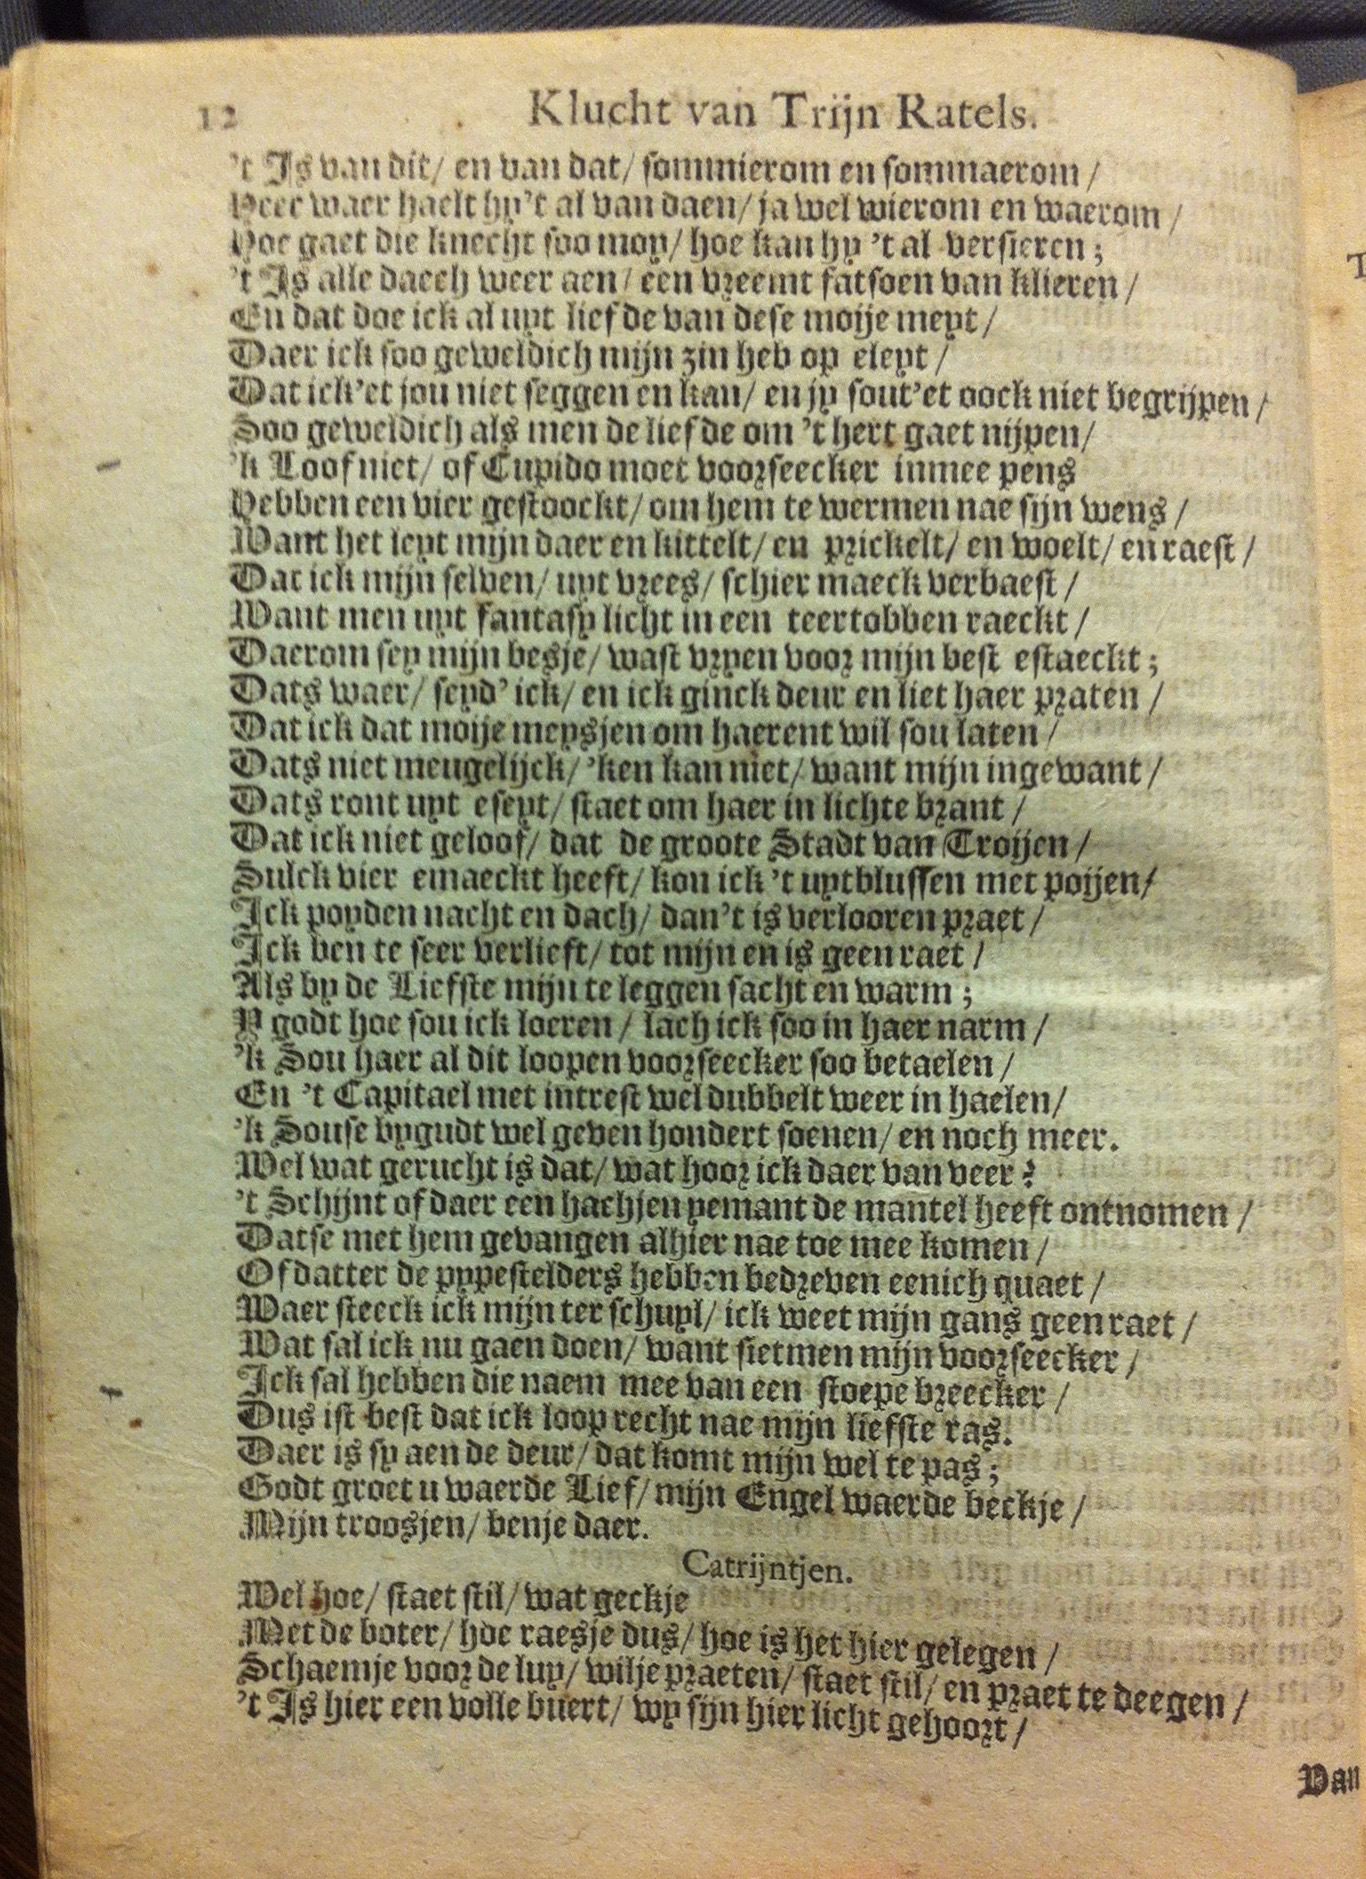 12 Klucht van Trijn Ratels.
't Is van dit/ en van dat/ sommierom en sommaerom/
Heer waer haelt hy't al van daen/ ja wel wierom en waerom/
Hoe gaet die knecht soo moy/ hoe kan hy 't al versieren;
't Is alle daech weer aen/ een vreemt fatsoen van klieren/
En dat doe ick al uyt liefde van dese moije meyt/
Daer ick soo geweldich mijn zin heb op eleyt/
Dat ick'et jou niet seggen en kan/ en jy sout'et oock niet begrijpen/
Soo geweldich als men de liefde om 't hert gaet nijpen/
'k Loof niet/ of Cupido moet voorseecker inmee pens
Hebben een vier gestoockt/ om hem te wermen nae sijn wens/
Want het leyt mijn daer en kittelt/ en prickelt/ en woelt/ en raest/
Dat ick mijn selven/ uyt vrees/ schier maeck verbaest/
Want men uyt fantasy licht in een teertobben raeckt/
Daerom sey mijn besje/ wast vryen voor mijn best estaeckt;
Dats waer/ seyd' ick/ en ick ginck deur en liet haer praten/
Dat ick dat moije meysjen om haerent wil sou laten/
Dats niet meugelijck/ 'ken kan niet/ want mijn ingewant/
Dats ront uyt eseyt/ staet om haer in lichte brant/
Dat ick niet geloof/ dat de groote Stadt van Troijen/
Sulck vier emaeckt heeft/ kon ick 't uytblussen met poijen/
Ick poyden nacht en dach/ dan't is verlooren praet/
Ick ben te seer verlieft/ tot mijn en is geen raet/
Als by de Liefste mijn te leggen sacht en warm;
Y godt hoe sou ick loeren/ lach ick soo in haer narm/
'k Sou haer al dit loopen voorseecker soo betaelen/
En 't Capitael met intrest wel dubbelt weer in haelen/
'k Souse bygudt wel geven hondert soenen/ en noch meer.
Wel wat gerucht is dat/ wat hoor ick daer van veer?
't Schijnt of daer een hachjen yemant de mantel heeft ontnomen/
Datse met hem gevangen alhier nae toe mee komen/
Of datter de pypestelders hebben bedreven eenich quaet/
Waer steeck ick mijn ter schuyl/ ick weet mijn gans geen raet/
Wat sal ick nu gaen doen/ want sietmen mijn voorseecker/
Ick sal hebben die naem mee van een stoepe breecker/
Dus ist best dat ick loop recht nae mijn liefste ras.
Daer is sy aen de deur/ dat komt mijn wel te pas;
Godt groet u waerde Lief/ mijn Engel waerde beckje/
Mijn troosjen/ benje daer.
Catrijntjen.
Wel hoe/ staet stil/ wat geckje
Met de boter/ hoe raesje dus/ hoe is het hier gelegen/
Schaemje voor de luy/ wilje praeten/ staet stil/ en praet te deegen/
't Is hier een volle buert/ wy sijn hier licht gehoort/
Dan